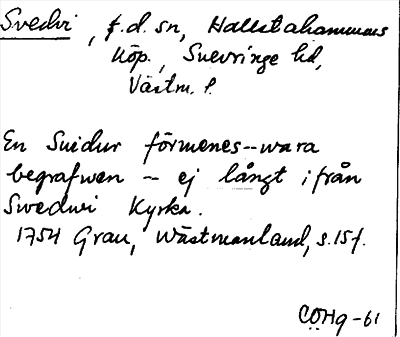 Svedvi, f.d. sn, Hallstahammars
köp., Snevringe hd,
Västm. l.
En Svidur förmenes -- wara
begrafwen -- ej långt ifrån
Swedwi Kyrka.
1754 Grau, Wästmanland, s. 15 f.
COHg -61